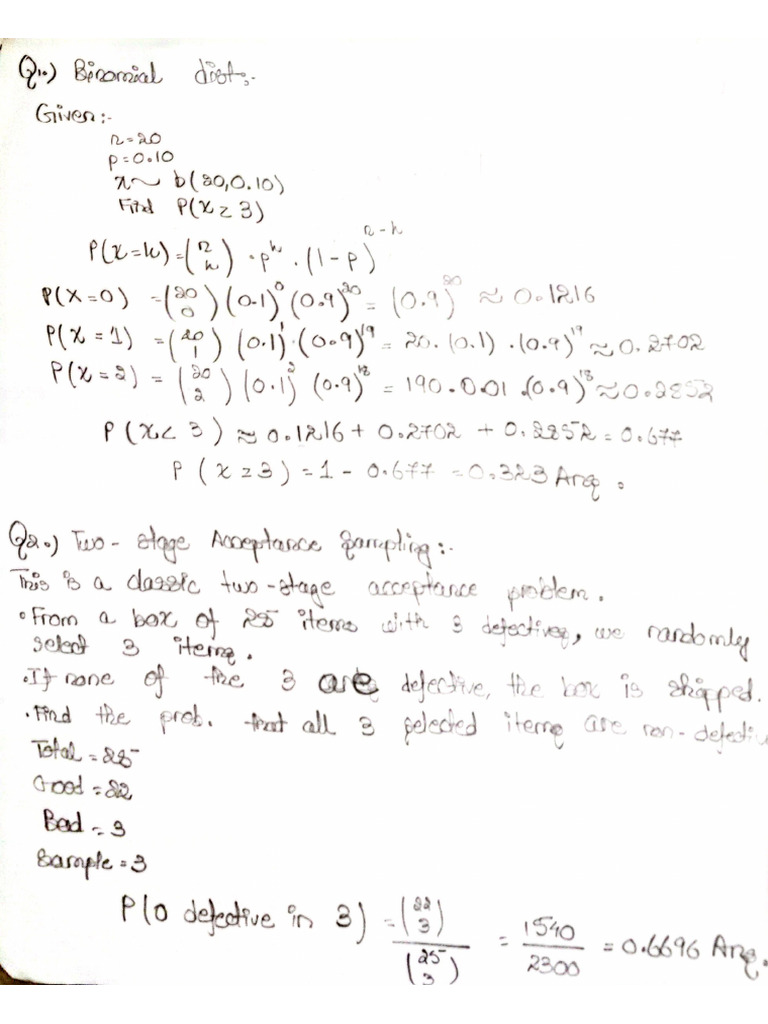 Q1.) Binomial dist:-
Given:-
n=20
p=0.10
x~ b(20,0.10)
Find P(x≥3)
P(x=k)=(n k) · p^k · (1-p)^n-k
P(X=0) =(20 0)(0.1)^0 (0.9)^20 = (0.9)^20 ≈ 0.1216
P(x=1) =(20 1) (0.1)^1·(0.9)^19 = 20·(0.1)·(0.9)^19 ≈0.2702
P(x=2) = (20 2) (0.1)^2 (0.9)^18 = 190·0.01·(0.9)^18 ≈0.2852
P(x<3) ≈0.1216+0.2702+0.2852=0.677
P(x≥3)=1-0.677=0.323 Ans.
Q2.) Two-stage Acceptance Sampling:-
This is a classic two-stage acceptance problem.
•From a box of 25 items with 3 defectives, we randomly
select 3 items.
•If none of the 3 are defective, the box is shipped.
•Find the prob. that all 3 selected items are non-defectiv
Total=25
Good=22
Bad=3
Sample=3
P(0 defective in 3) = (22 3)/(25 3) = 1540/2300 = 0.6696 Ans.